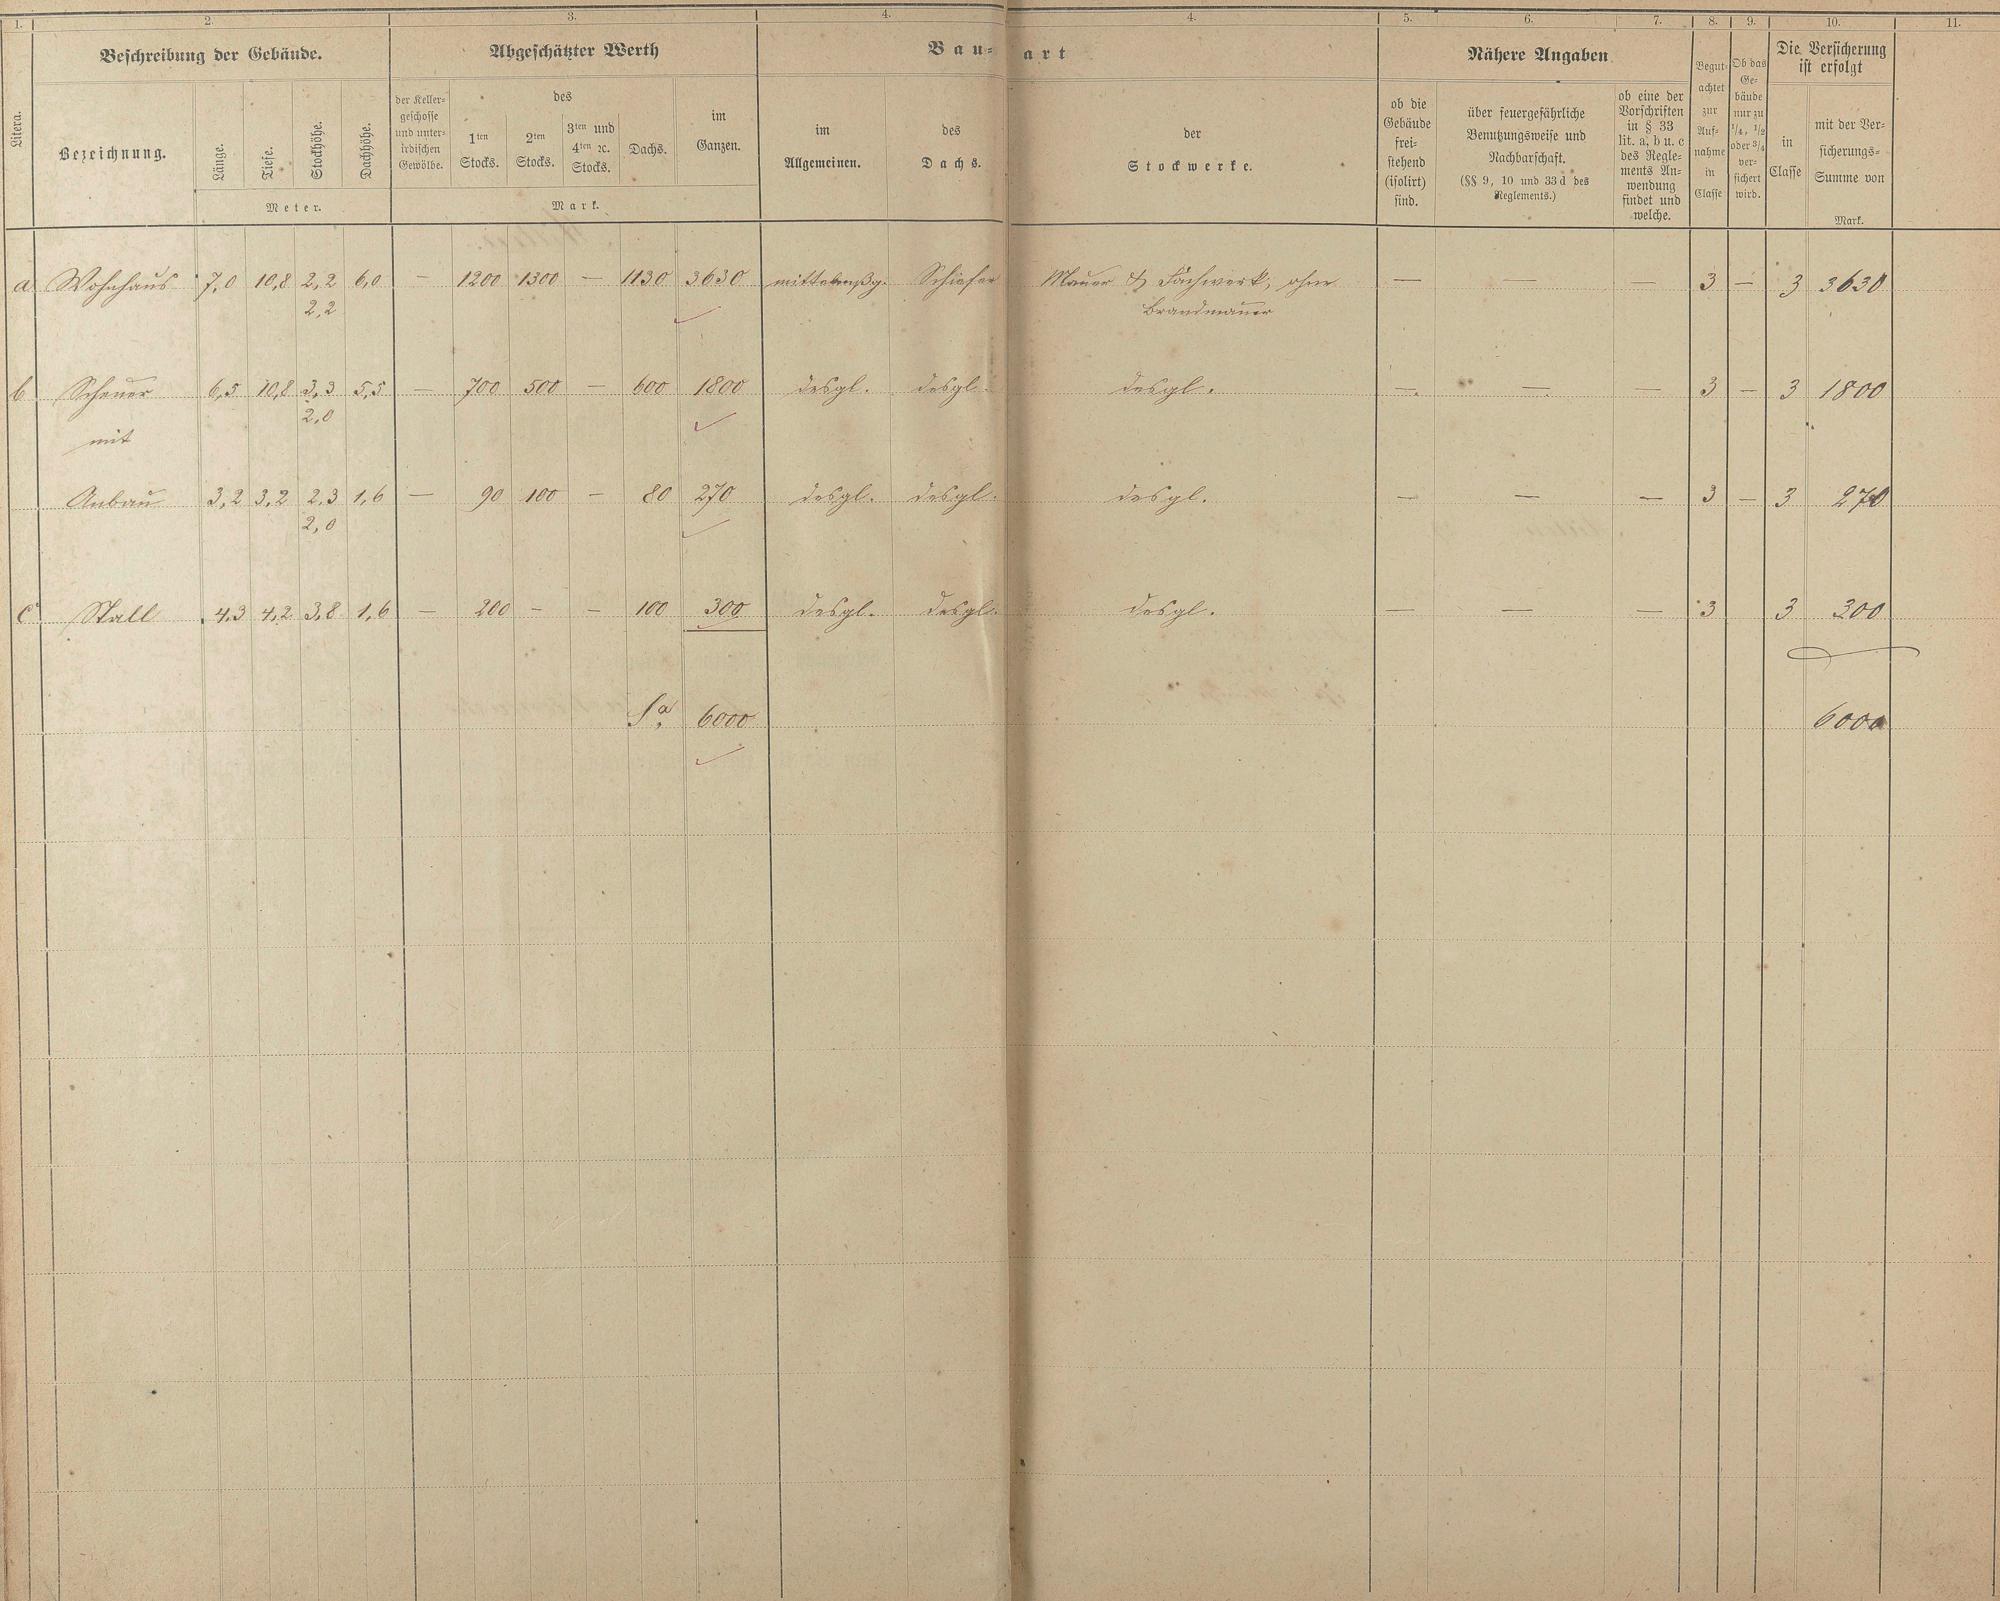 1. 2. 3. 4. 4. 5. 6. 7. 8. 9. 10. 11.
Litera.
Beschreibung der Gebäude.
Bezeichnung.
Länge.
Tiefe.
Stockhöhe.
Dachhöhe.
Meter.
Abgeschätzter Werth
der Keller-
geschosse
und unter-
irdischen
Gewölbe.
des
1ten
Stocks.
2ten
Stocks.
3ten und
4ten ꝛc.
Stocks.
Dachs.
im
Ganzen.
Mark.
Bau- art
im
Allgemeinen.
des
Dachs.
der
Stockwerke.
Nähere Angaben
ob die
Gebäude
frei-
stehend
(isolirt)
sind.
über feuergefährliche
Benutzungsweise und
Nachbarschaft.
(§§ 9, 10 und 33 d des
Reglements.)
ob eine der
Vorschriften
in § 33
lit. a, b u. c
des Regle-
ments An-
wendung
findet und
welche.
Begut-
achtet
zur
Auf-
nahme
in
Classe
Ob das
Ge-
bäude
nur zu
1/4, 1/2
oder 3/4
ver-
sichert
wird.
Die Versicherung
ist erfolgt
in
Classe
mit der Ver-
sicherungs-
Summe von
Mark.
a Wohnhaus 7,0 10,8 2,2 6,0 — 1200 1300 — 1130 3630 mittelmßg. Schiefer Mauer & Fachwerk; ohne — — — 3 — 3 3630
2,2 Brandmauer
b Scheuer 6,5 10,8 3,3 5,5 — 700 500 — 600 1800 desgl. desgl. desgl. — — — 3 — 3 1800
2,0
mit
Anbau 3,2 3,2 2,3 1,6 — 90 100 — 80 270 desgl. desgl. desgl. — — — 3 — 3 270
2,0
c Stall 4,3 4,2 3,8 1,6 — 200 — — 100 300 desgl. desgl. desgl. — — — 3 3 300
Sa. 6000 6000